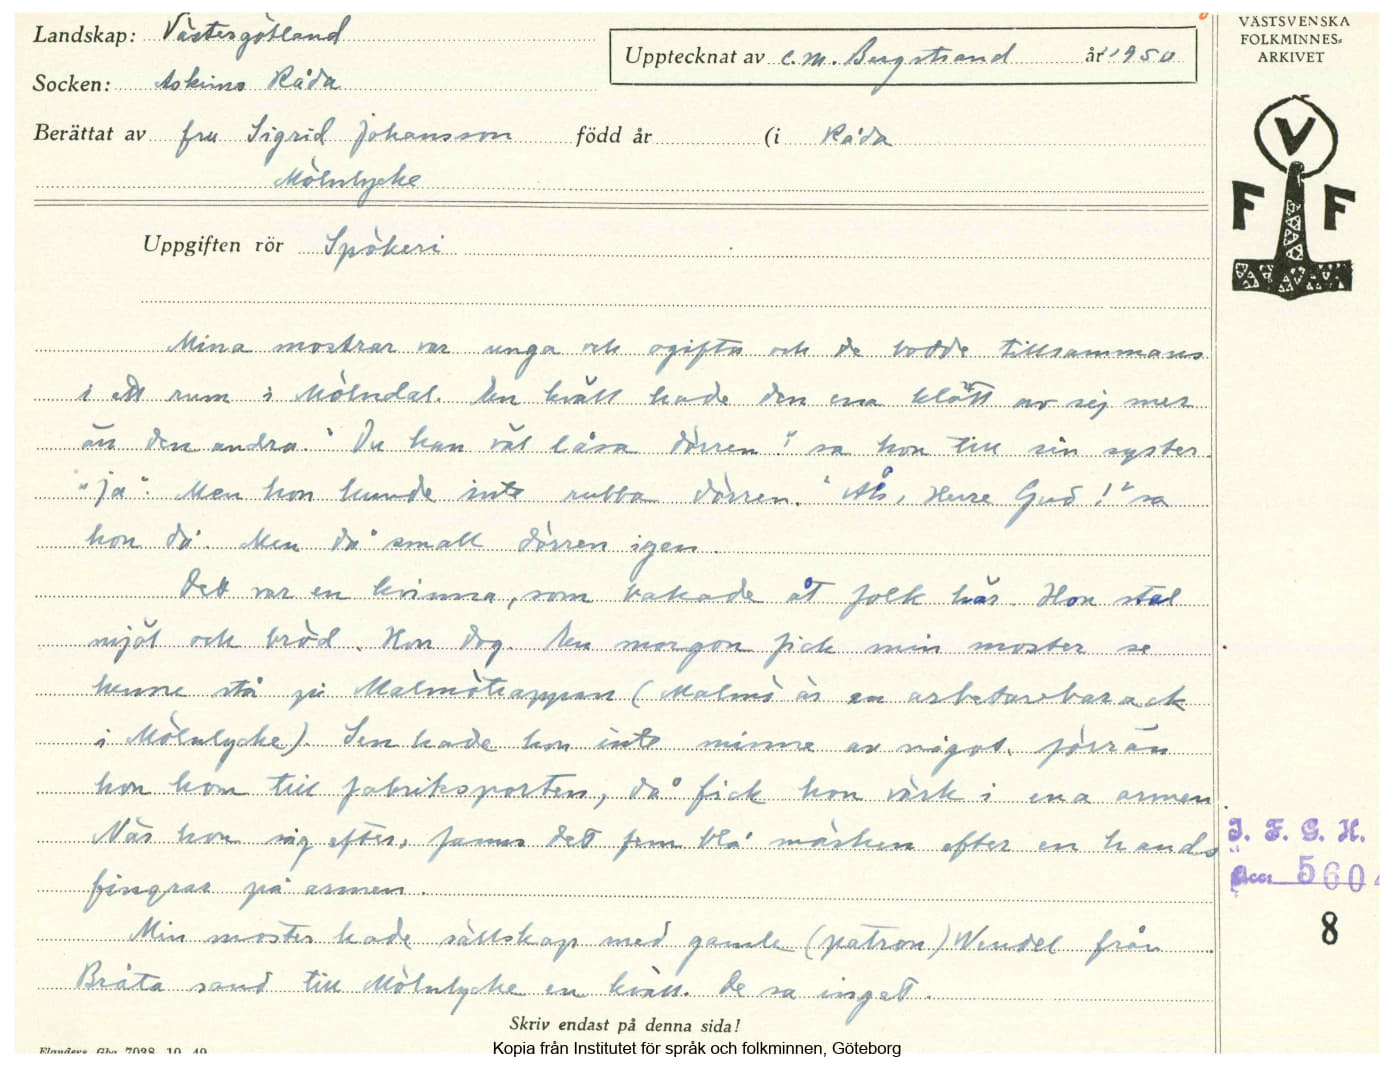 Landskap: Västergötland
Upptecknat av C.M. Bergstrand år 1950
Socken: Askims Råda
Berättat av fru Sigrid Johansson född år (i Råda
Mölnlycke
VÄSTSVENSKA
FOLKMINNES-
ARKIVET
V
F F
Uppgiften rör Spökeri
Mina mostrar var unga och ogifta och de bodde tillsammans
i ett rum i Mölndal. En kväll hade den ena klätt av sej mer
än den andra. "Du kan väl låsa dörren!" sa hon till sin syster.
"Ja". Men hon kunde inte rubba dörren. "Åh, Herre Gud!" sa
hon då. Men då small dörren igen.
Dett var en kvinna, som bakade åt folk här. Hon stal
mjöl och bröd. Hon dog. En morgon fick min moster se
henne stå på Malmötrappan (Malmö är en arbetarebarack
i Mölnlycke). Sen hade hon inte minne av något, förrän
hon kom till fabriksporten, då fick hon värk i ena armen
När hon såg efter, fanns det fem blå märken efter en hands
fingrar på armen.
Min moster hade sällskap med gamle (patron) Wendel från
Bråta sand till Mölnlycke en kväll. De sa inget.
J. F. G. H.
Acc. 5604
8
Skriv endast på denna sida!
Flanders Gbg 7038 10 49
Kopia från Institutet för språk och folkminnen, Göteborg